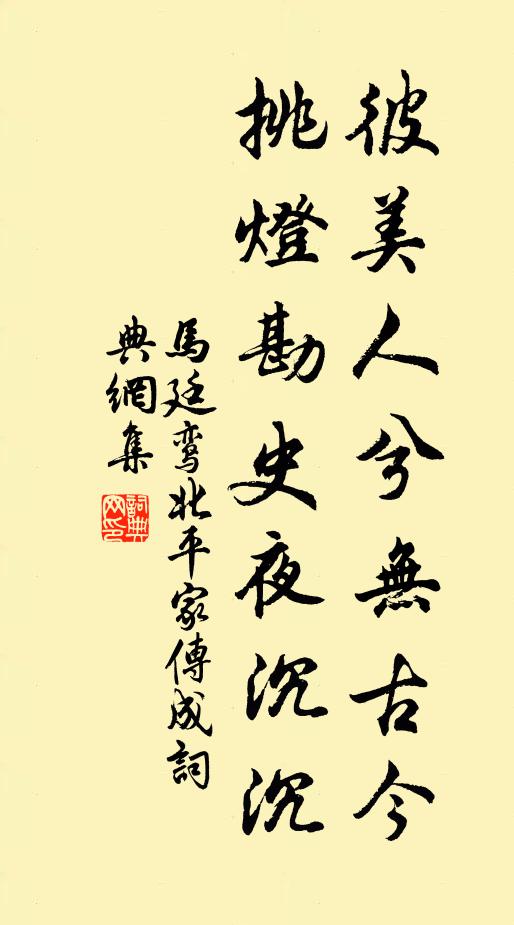 彼美人兮無古今
挑燈勘史夜沉沉
馬廷鸾北平家傳成詞
典網集
詞典
网印